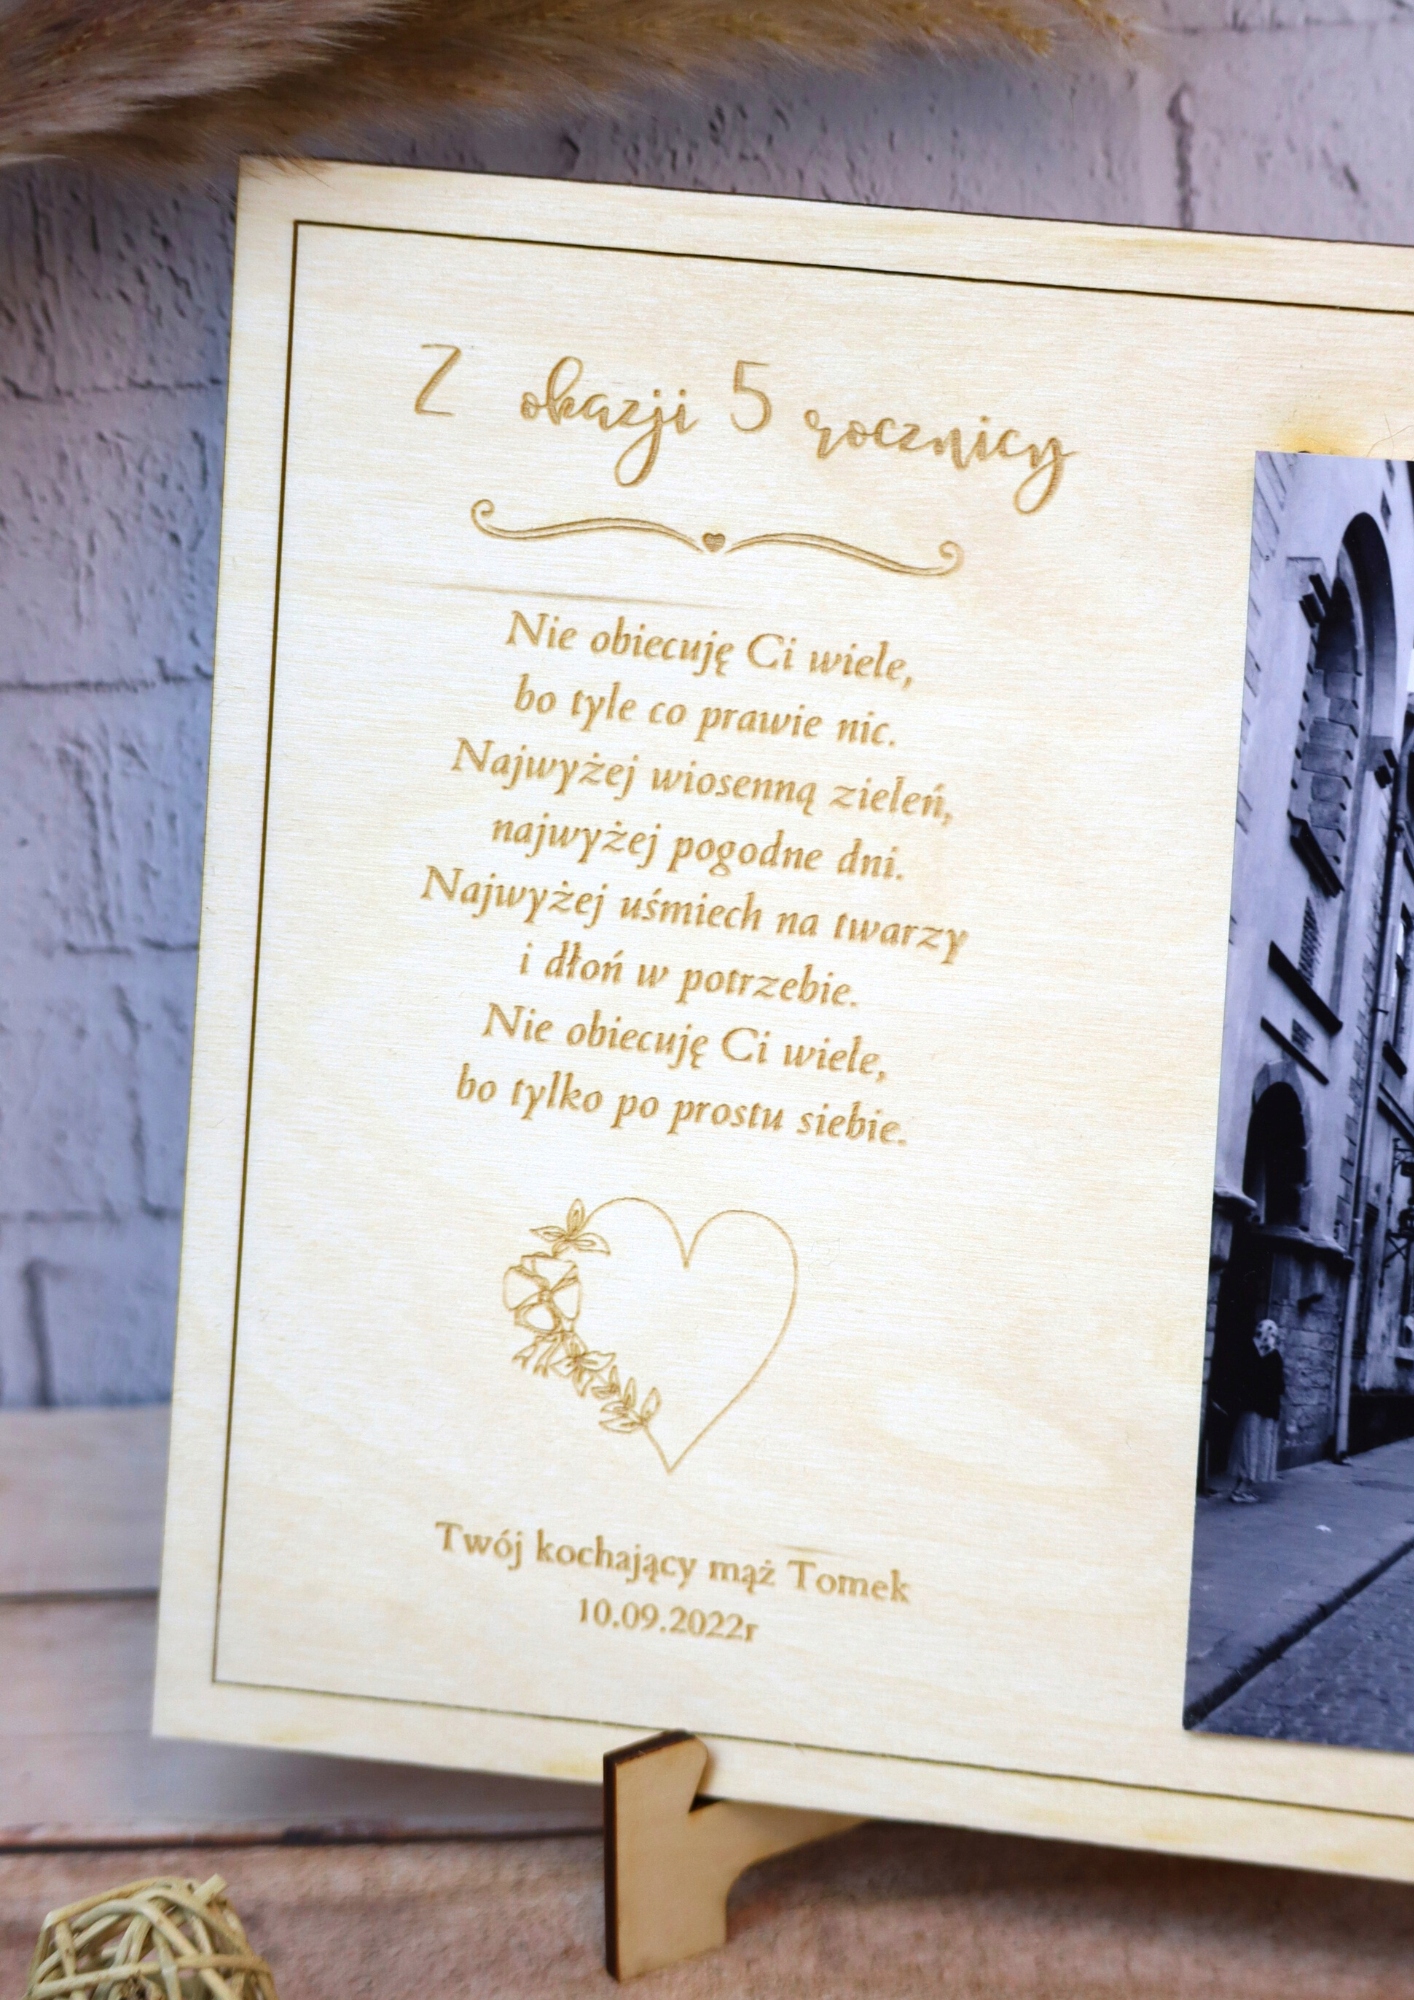 Z okazji 5 rocznicy
Nie obiecuję Ci wiele,
bo tyle co prawie nic.
Najwyżej wiosenną zieleń,
najwyżej pogodne dni.
Najwyżej uśmiech na twarzy
i dłoń w potrzebie.
Nie obiecuję Ci wiele,
bo tylko po prostu siebie.
Twój kochający mąż Tomek
10.09.2022r